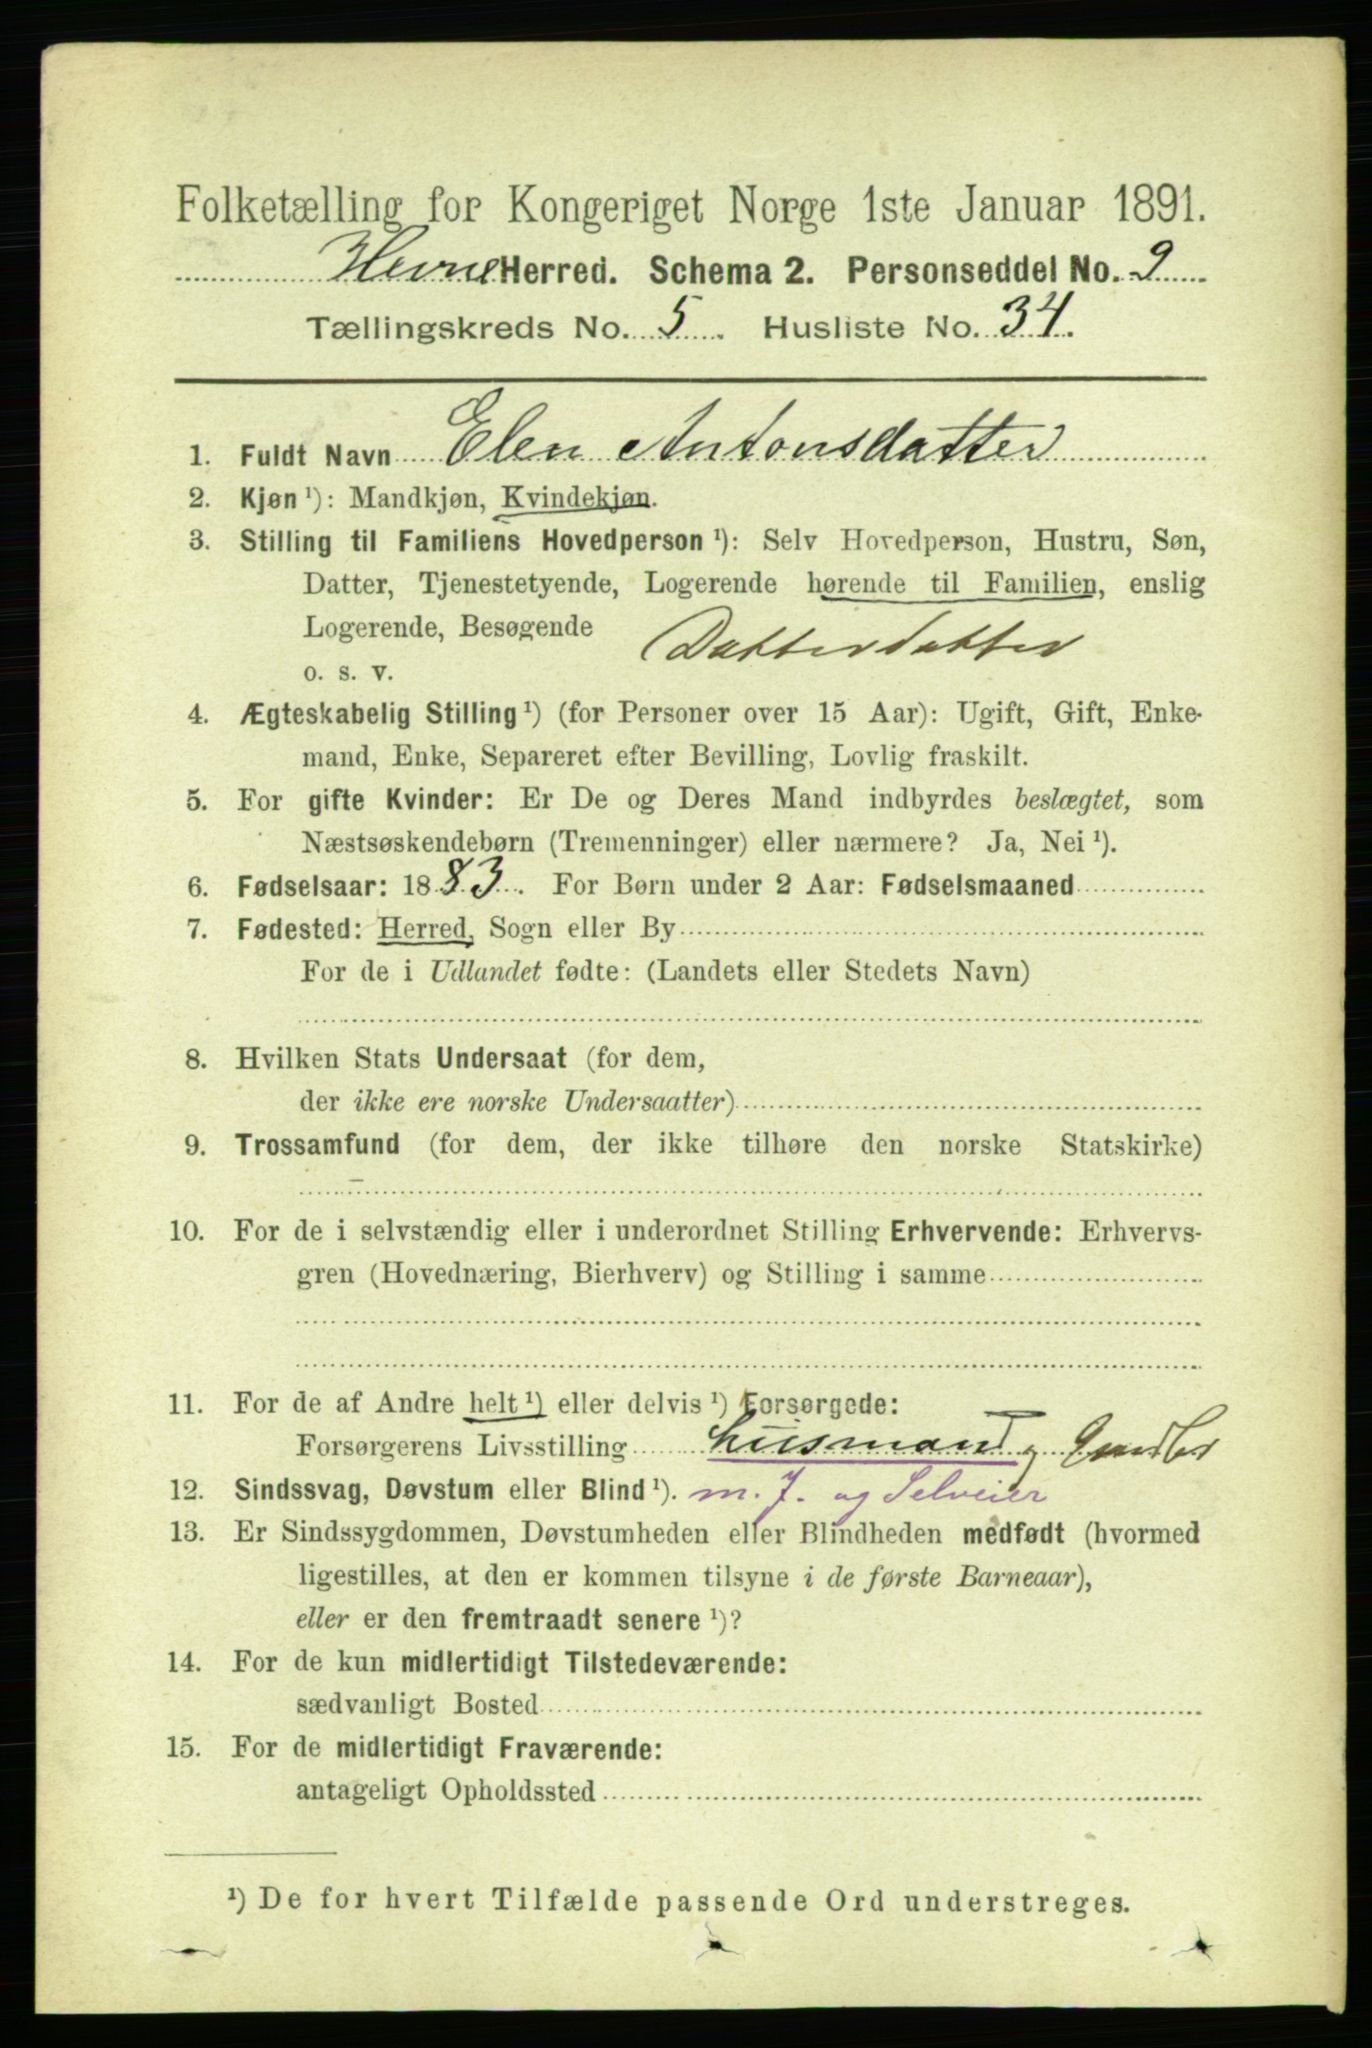 Folketælling for Kongeriget Norge 1ste Januar 1891.
Hevne Herred. Schema 2. Personseddel No. 9
Tællingskreds No. 5. Husliste No. 34.
1. Fuldt Navn Elen Antonsdatter
2. Kjøn ¹): Mandkjøn, Kvindekjøn.
3. Stilling til Familiens Hovedperson ¹): Selv Hovedperson, Hustru, Søn,
Datter, Tjenestetyende, Logerende hørende til Familien, enslig
Logerende, Besøgende Datterdatter
o. s. v.
4. Ægteskabelig Stilling ¹) (for Personer over 15 Aar): Ugift, Gift, Enke-
mand, Enke, Separeret efter Bevilling, Lovlig fraskilt.
5. For gifte Kvinder: Er De og Deres Mand indbyrdes beslægtet, som
Næstsøskendebørn (Tremenninger) eller nærmere? Ja, Nei ¹).
6. Fødselsaar: 1883. For Børn under 2 Aar: Fødselsmaaned
7. Fødested: Herred, Sogn eller By
For de i Udlandet fødte: (Landets eller Stedets Navn)
8. Hvilken Stats Undersaat (for dem,
der ikke ere norske Undersaatter)
9. Trossamfund (for dem, der ikke tilhøre den norske Statskirke)
10. For de i selvstændig eller i underordnet Stilling Erhvervende: Erhvervs-
gren (Hovednæring, Bierhverv) og Stilling i samme
11. For de af Andre helt ¹) eller delvis ¹) Forsørgede:
Forsørgerens Livsstilling Husmand
12. Sindssvag, Døvstum eller Blind ¹). m. J. og Selveier
13. Er Sindssygdommen, Døvstumheden eller Blindheden medfødt (hvormed
ligestilles, at den er kommen tilsyne i de første Barneaar),
eller er den fremtraadt senere ¹)?
14. For de kun midlertidigt Tilstedeværende:
sædvanligt Bosted
15. For de midlertidigt Fraværende:
antageligt Opholdssted
¹) De for hvert Tilfælde passende Ord understreges.